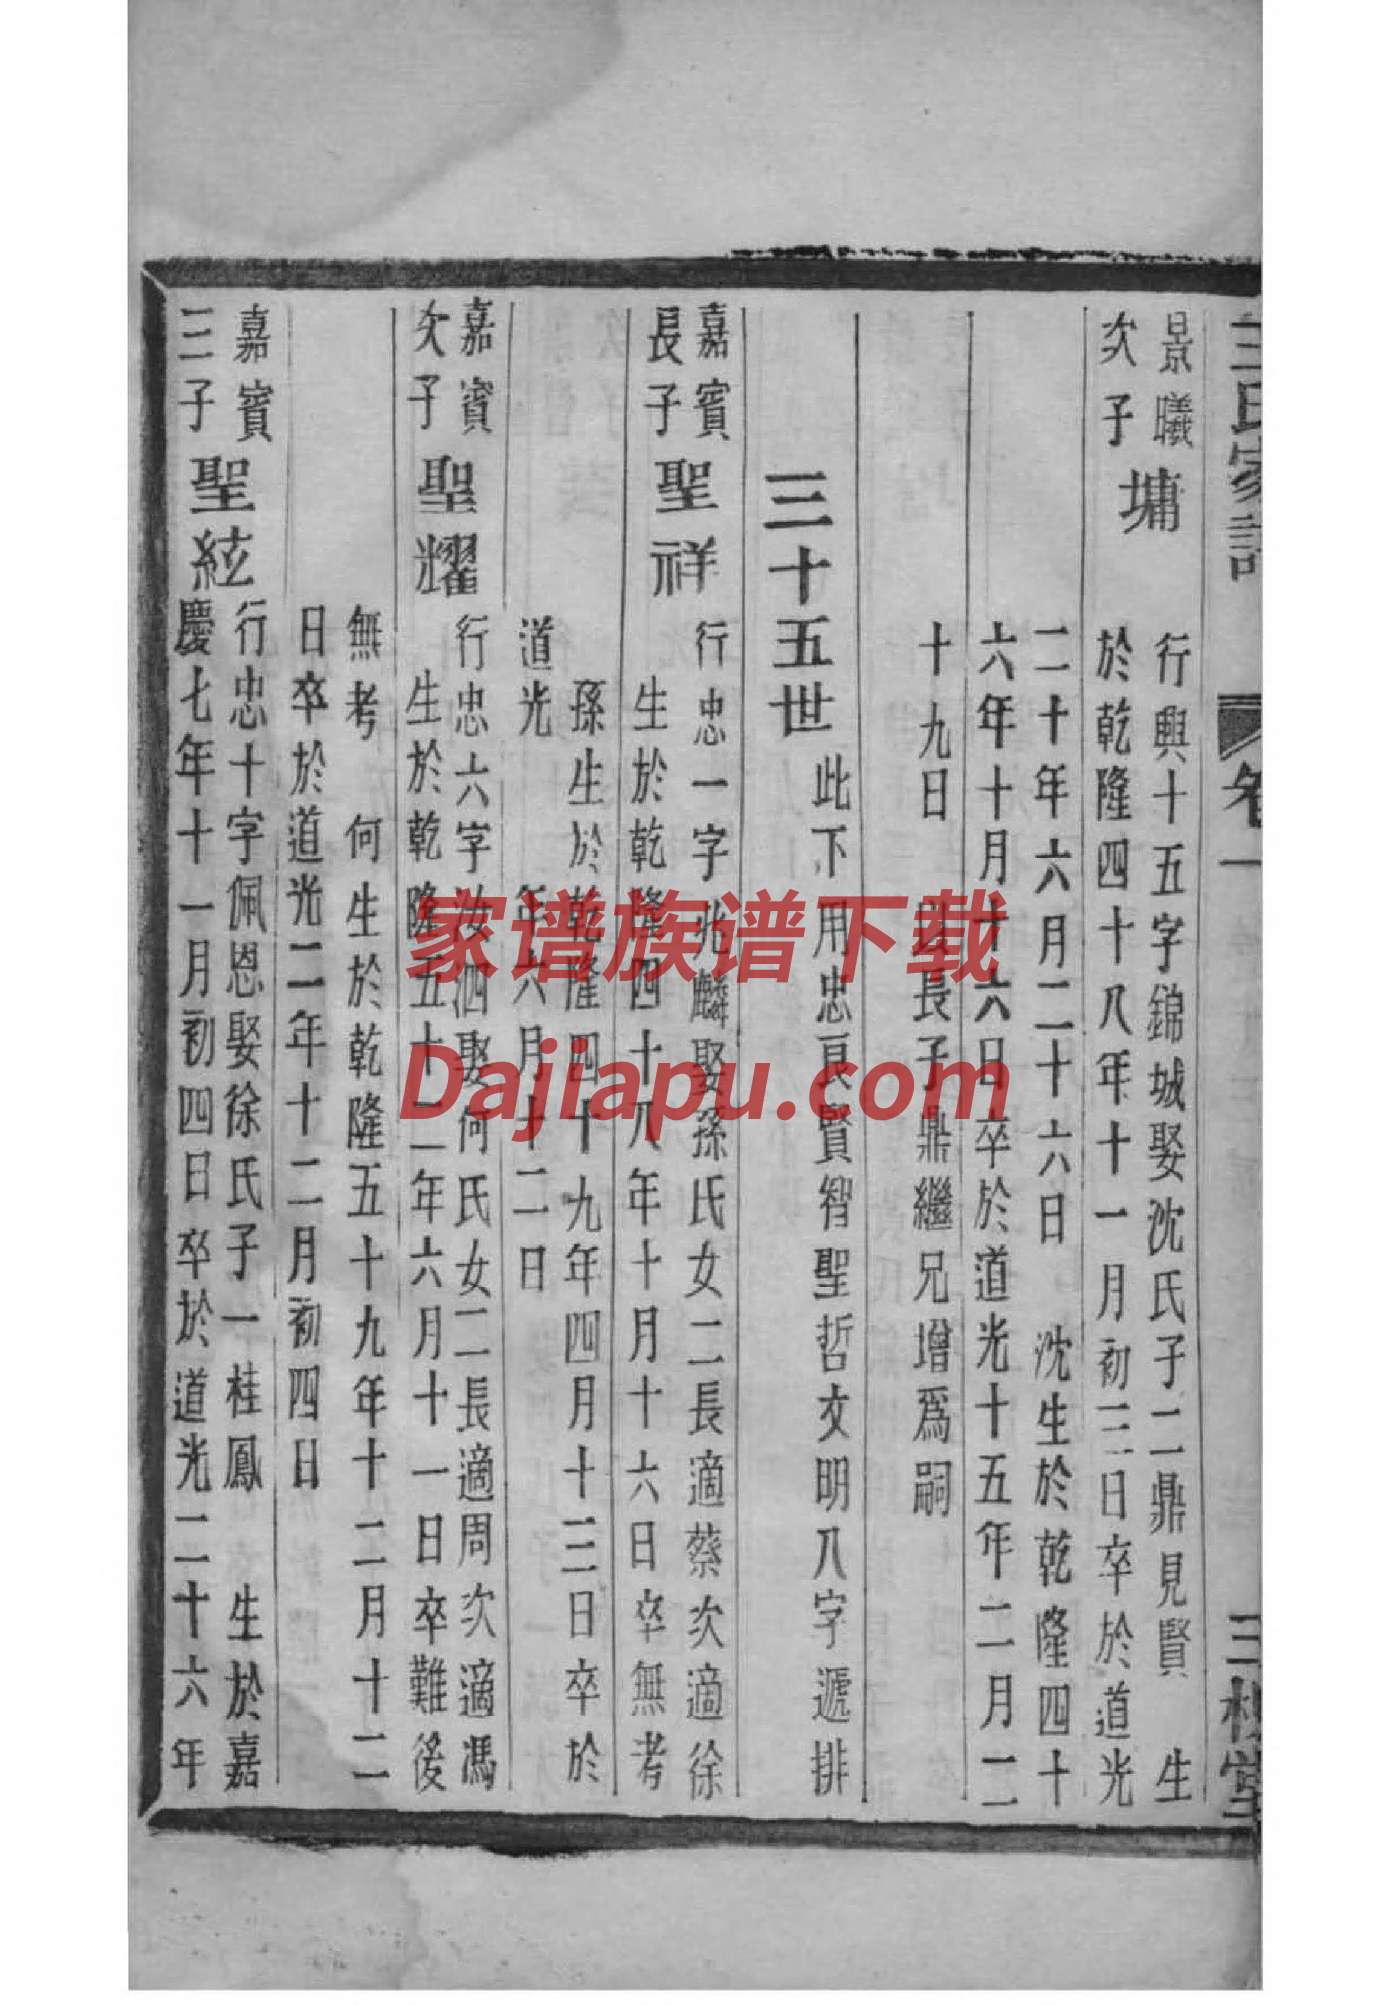 王氏家譜 卷一 三槐堂
景曦
次子
墉
行興十五字錦城娶沈氏子二鼎見賢 生
於乾隆四十八年十一月初三日卒於道光
二十年六月二十六日 沈生於乾隆四十
六年十月廿六日卒於道光十五年二月二
十九日
以長子鼎繼兄增爲嗣
三十五世
此下用忠良賢智聖哲文明八字遞排
嘉賓
長子
聖祥
行忠一字兆麟娶孫氏女二長適蔡次適徐
生於乾隆四十八年十月十六日卒無考
孫生於乾隆四十九年四月十三日卒於
道光 年六月十二日
嘉賓
次子
聖耀
行忠六字汝泗娶何氏女二長適周次適馮
生於乾隆五十二年六月十一日卒難後
無考 何生於乾隆五十九年十二月十二
日卒於道光二年十二月初四日
嘉賓
三子
聖紘
行忠十字佩恩娶徐氏子一桂鳳 生於嘉
慶七年十一月初四日卒於道光二十六年
家谱族谱下载
Dajiapu.com